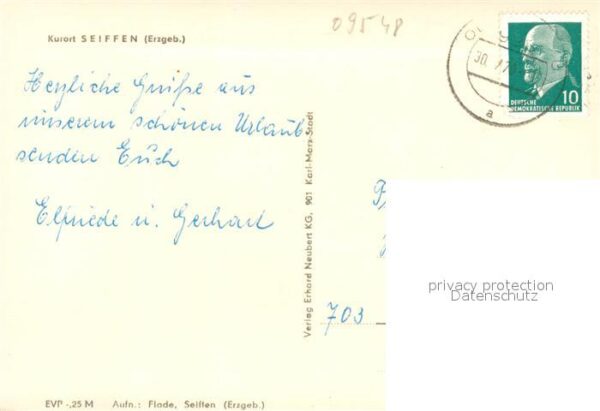 Kurort SEIFFEN (Erzgeb.)
09548
Herzliche Grüße aus
unserem schönen Urlaub
senden Euch
Elfriede u. Gerhart
Verlag Erhard Neubert KG, 901 Karl-Marx-Stadt
10
DEUTSCHE
DEMOKRATISCHE REPUBLIK
30.
a
703
privacy protection
Datenschutz
EVP -,25 M Aufn.: Flade, Seiffen (Erzgeb.)